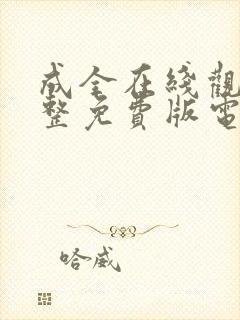 成全在綫觀
整免費版電
哈威